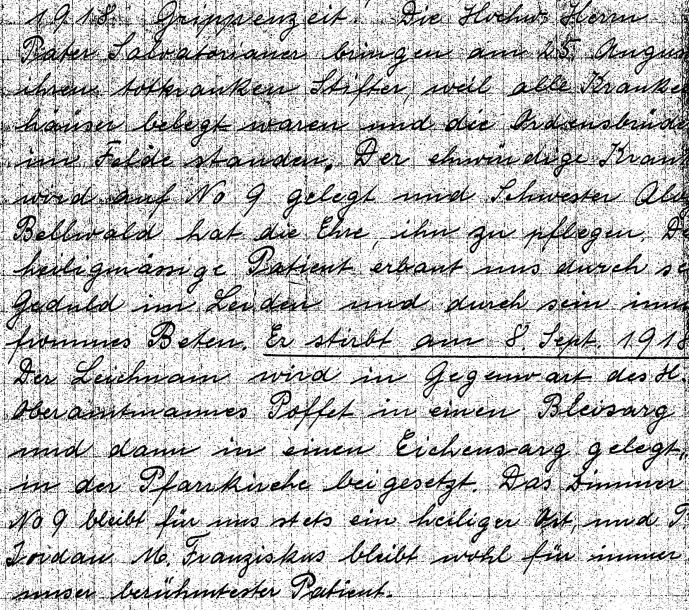 1918. Grippenzeit. Die Hochw. Herrn
Pater Salvatorianer bringen am 25. Augus
ihren totkranken Stifter, weil alle Kranke
häuser belegt waren und die Ordensbrüde
im Felde standen. Der ehrwürdige Krank
wird auf No 9 gelegt und Schwester Alo
Bellwald hat die Ehre, ihn zu pflegen. De
heiligmässige Patient erbaut uns durch se
Geduld im Leiden und durch sein inni
frommes Beten. Er stirbt am 8. Sept. 1918
Der Leichnam wird in Gegenwart des H.
Oberamtmannes Poffet in einen Bleisarg
und dann in einen Eichensarg gelegt,
in der Pfarrkirche beigesetzt. Das Zimmer
No 9 bleibt für uns stets ein heiliger Ort, und P
Jordan M. Franziskus bleibt wohl für immer
unser berühmtester Patient.